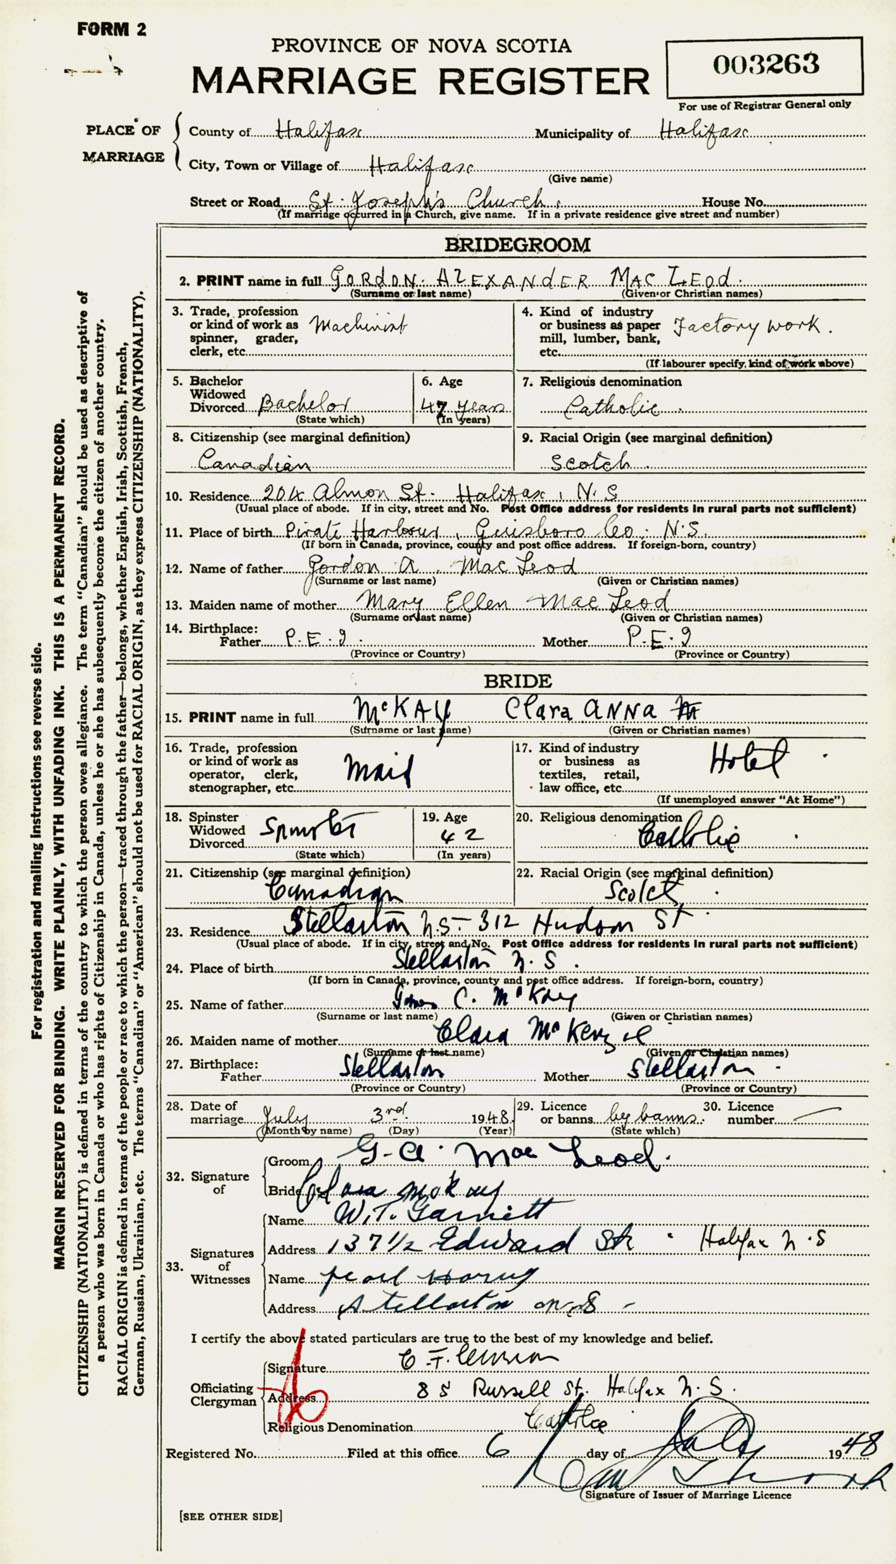 FORM 2
PROVINCE OF NOVA SCOTIA
MARRIAGE REGISTER
003263
For use of Registrar General only
PLACE OF MARRIAGE
County of Halifax Municipality of Halifax
City, Town or Village of Halifax
(Give name)
Street or Road St. Joseph's Church. House No.
(If marriage occurred in a Church, give name. If in a private residence give street and number)
BRIDEGROOM
2. PRINT name in full GORDON ALEXANDER MAC LEOD.
(Surname or last name) (Given or Christian names)
3. Trade, profession or kind of work as spinner, grader, clerk, etc. Machinist
4. Kind of industry or business as paper mill, lumber, bank, etc. Factory work.
(If labourer specify, kind of work above)
5. Bachelor Widowed Divorced Bachelor
(State which)
6. Age 47 years
(In years)
7. Religious denomination
Catholic.
8. Citizenship (see marginal definition)
Canadian
9. Racial Origin (see marginal definition)
Scotch.
10. Residence 204 Almon St. Halifax, N.S
(Usual place of abode. If in city, street and No. Post Office address for residents in rural parts not sufficient)
11. Place of birth Pirate Harbour, Guisboro Co. N.S.
(If born in Canada, province, county and post office address. If foreign-born, country)
12. Name of father Gordon A. Mac Leod
(Surname or last name) (Given or Christian names)
13. Maiden name of mother Mary Ellen Mac Leod
(Surname or last name) (Given or Christian names)
14. Birthplace: Father P.E.I. Mother P.E.I
(Province or Country) (Province or Country)
BRIDE
15. PRINT name in full McKAY Clara ANNA
(Surname or last name) (Given or Christian names)
16. Trade, profession or kind of work as operator, clerk, stenographer, etc. Maid
17. Kind of industry or business as textiles, retail, law office, etc. Hotel
(If unemployed answer "At Home")
18. Spinster Widowed Divorced Spinster
(State which)
19. Age 42
(In years)
20. Religious denomination
Catholic
21. Citizenship (see marginal definition)
Canadian
22. Racial Origin (see marginal definition)
Scotch
23. Residence Stellarton N.S. 312 Hudson St
(Usual place of abode. If in city, street and No. Post Office address for residents in rural parts not sufficient)
24. Place of birth Stellarton N.S.
(If born in Canada, province, county and post office address. If foreign-born, country)
25. Name of father C. McKay
(Surname or last name) (Given or Christian names)
26. Maiden name of mother Clara McKenzie
(Surname or last name) (Given or Christian names)
27. Birthplace: Father Stellarton Mother Stellarton
(Province or Country) (Province or Country)
28. Date of marriage July 3rd 1948
(Month by name) (Day) (Year)
29. Licence or banns by banns.
(State which)
30. Licence number
32. Signature of
Groom G. A. Mac Leod.
Bride Clara McKay
33. Signatures of Witnesses
Name W. T. Garnett
Address 137 1/2 Edward St. Halifax N.S
Name Pearl
Address Stellarton N.S
I certify the above stated particulars are true to the best of my knowledge and belief.
Officiating Clergyman
Signature C. F.
Address 85 Russell St. Halifax N.S.
Religious Denomination Catholic
Registered No. Filed at this office 6 day of July 1948
Signature of Issuer of Marriage Licence
[SEE OTHER SIDE]
For registration and mailing instructions see reverse side.
MARGIN RESERVED FOR BINDING. WRITE PLAINLY, WITH UNFADING INK. THIS IS A PERMANENT RECORD.
CITIZENSHIP (NATIONALITY) is defined in terms of the country to which the person owes allegiance. The term "Canadian" should be used as descriptive of
a person who was born in Canada or who has rights of Citizenship in Canada, unless he or she has subsequently become the citizen of another country.
RACIAL ORIGIN is defined in terms of the people or race to which the person—traced through the father—belongs, whether English, Irish, Scottish, French,
German, Russian, Ukrainian, etc. The terms "Canadian" or "American" should not be used for RACIAL ORIGIN, as they express CITIZENSHIP (NATIONALITY).